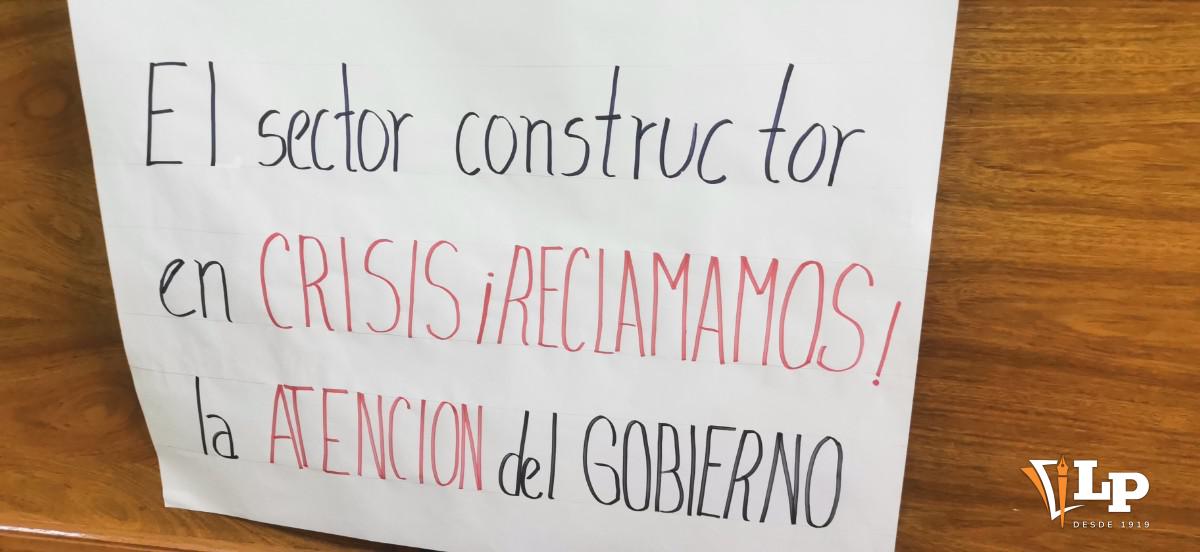 El sector constructor
en CRISIS ¡RECLAMAMOS!
la ATENCION del GOBIERNO
LP
DESDE 1919